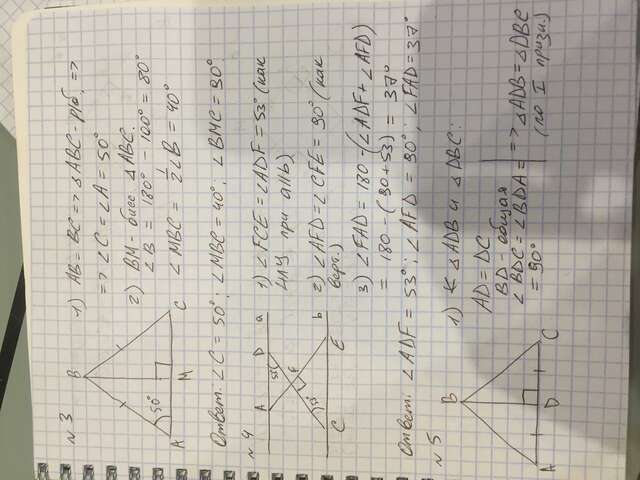 №3
B
A
M
C
50°
1) AB = BC => △ABC - р/б. =>
=> ∠C = ∠A = 50°
2) BM - бисс. △ABC.
∠B = 180° - 100° = 80°
∠MBC = 1/2 ∠B = 40°
Ответ: ∠C = 50°; ∠MBC = 40°; ∠BMC = 90°
№4
A
D
a
53°
F
53°
C
E
b
1) ∠FCE = ∠ADF = 53° (как
НЛУ при a||b)
2) ∠AFD = ∠CFE = 90° (как
верт.)
3) ∠FAD = 180 - (∠ADF + ∠AFD)
= 180 - (90 + 53) = 37°
Ответ: ∠ADF = 53°; ∠AFD = 90°; ∠FAD = 37°
№5
B
A
D
C
1) ∢ △ADB и △DBC:
AD = DC
BD - общая
∠BDC = ∠BDA =
= 90°
=> △ADB = △DBC
(по I призн.)